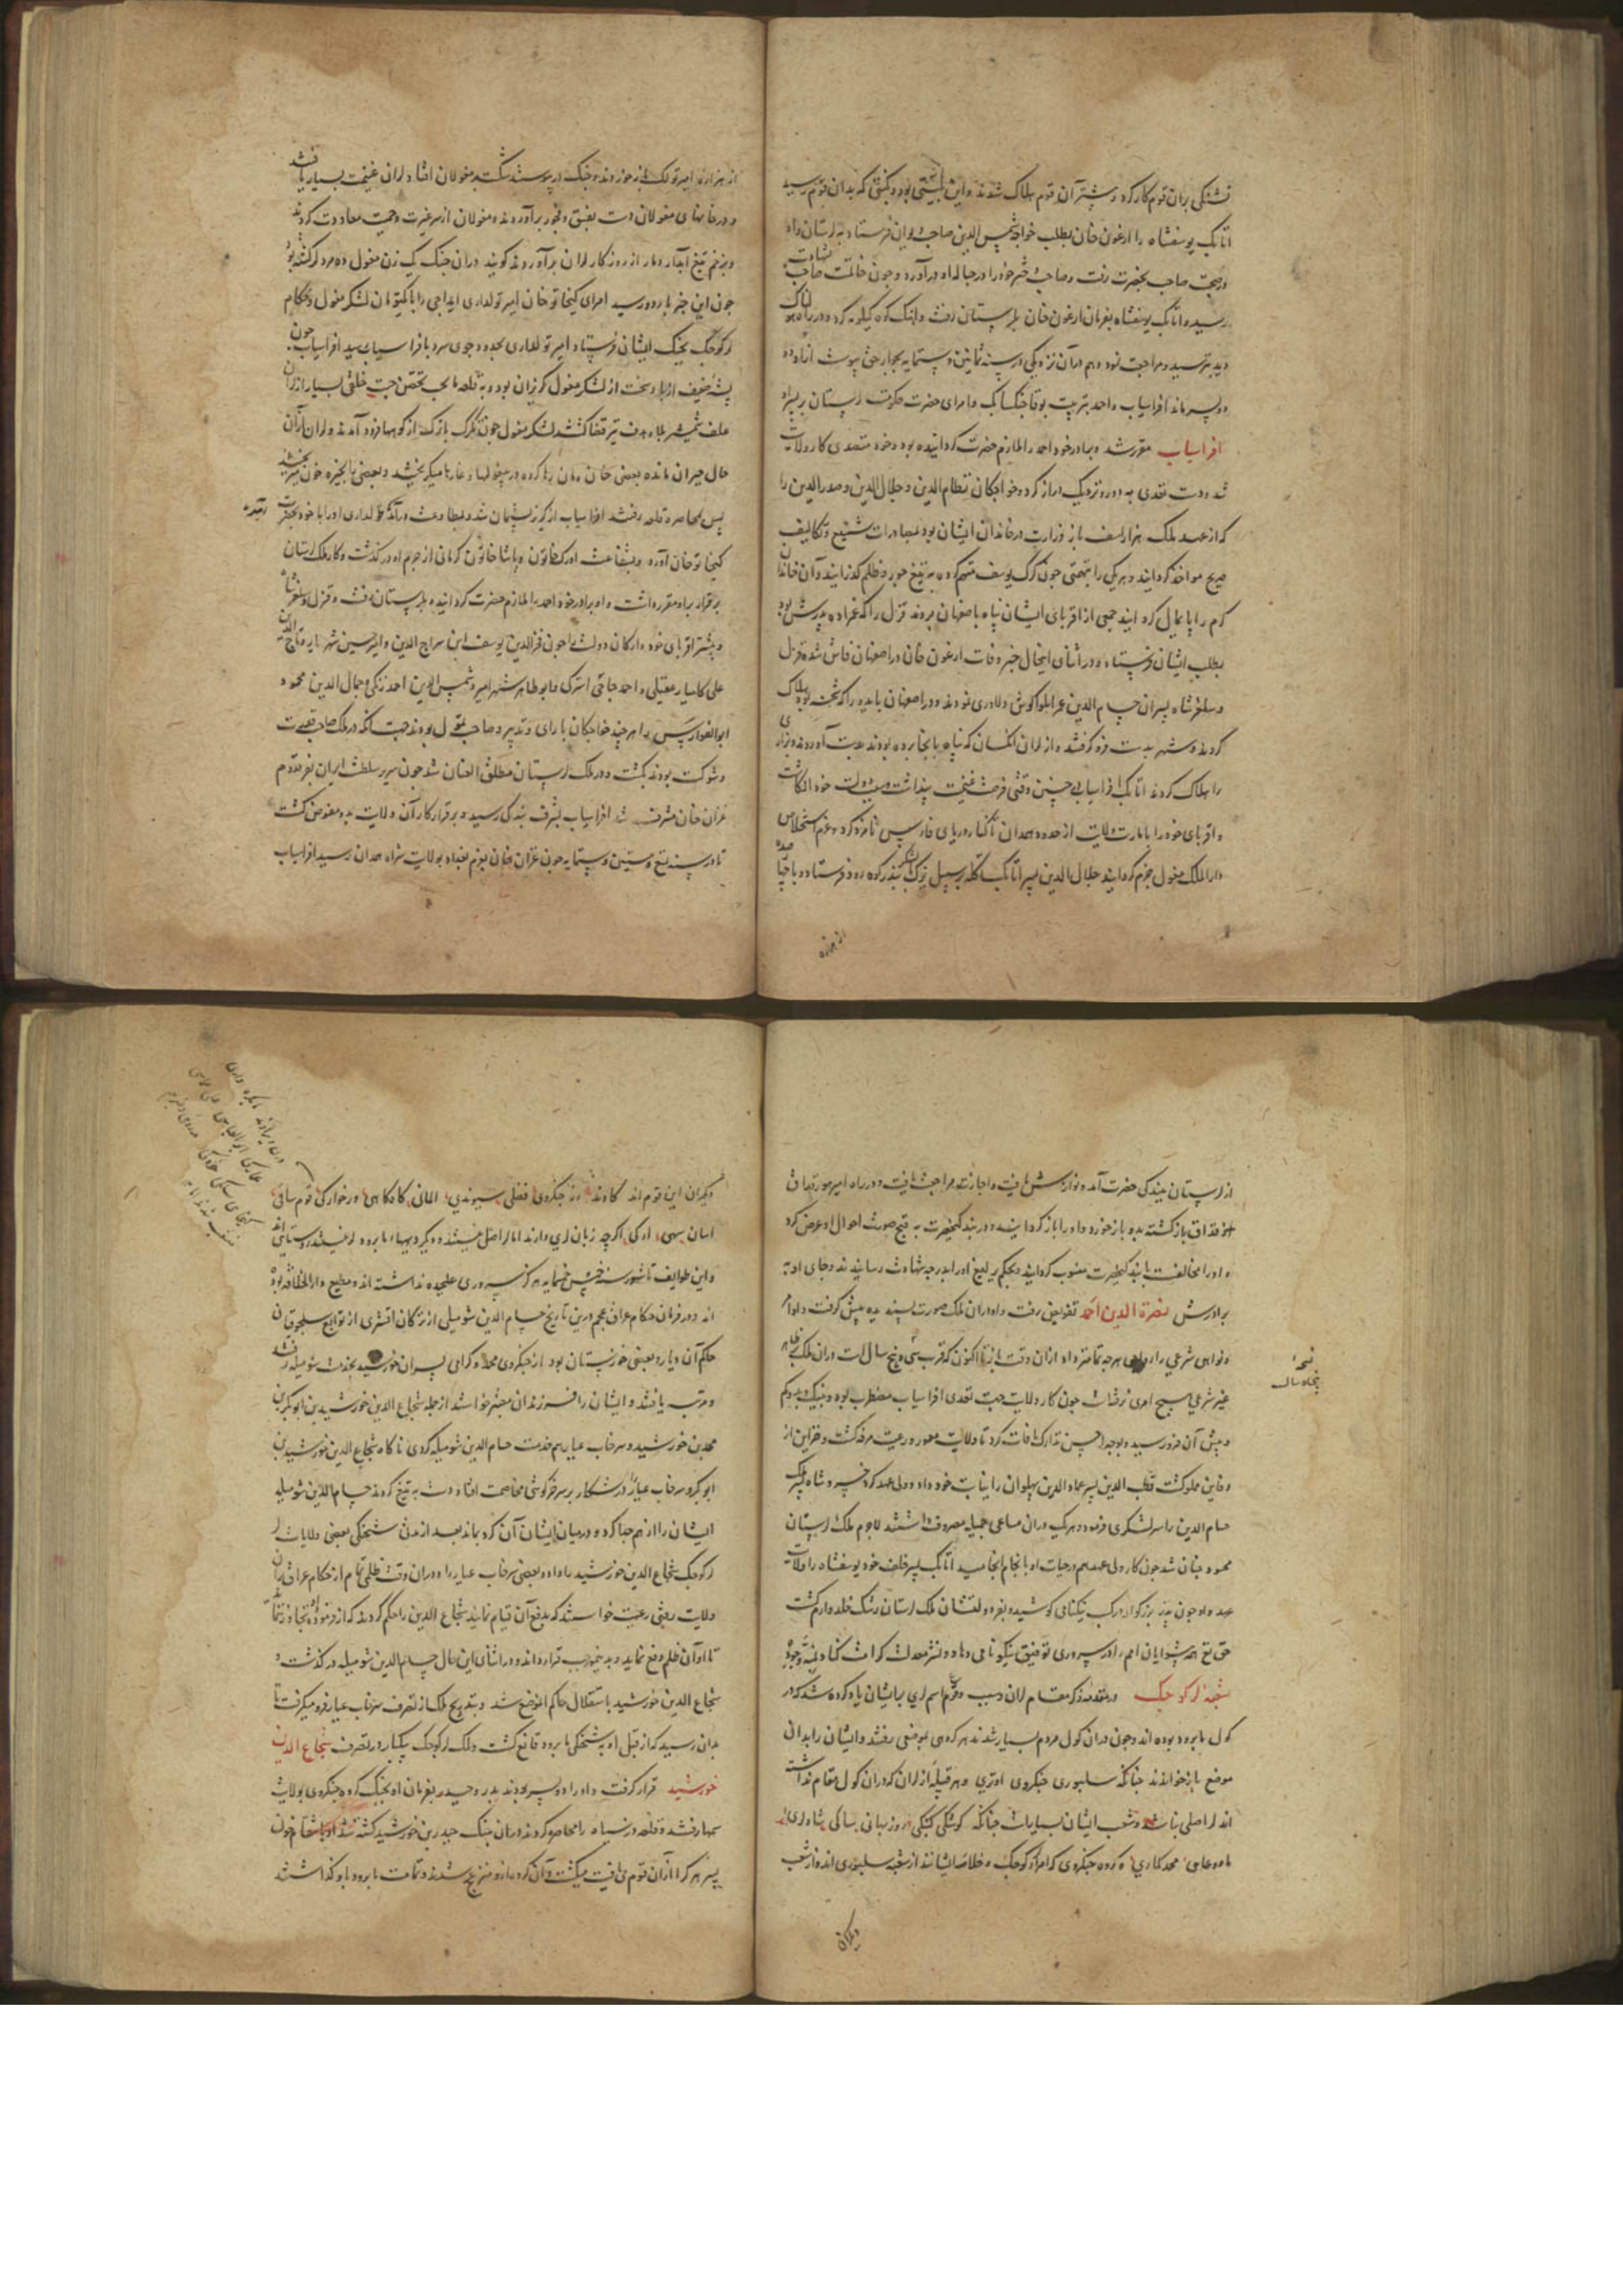 تشنگی بران قوم کار کرد و بیشتر آن قوم هلاک شدند و این بود و کشتی که بدان قوم رسید
اتابک یوسفشاه را ارغون خان بطلب خواجه شمس الدین صاحب دیوان فرستاد به لرستان و او
در صحبت صاحب بحضرت رفت و صاحب دختر خود را در حباله او در آورد و چون حالت شهادت صاحب
رسید و اتابک یوسفشاه بفرمان ارغون خان بلرستان رفت و آهنگ کوه کیلویه کرد و در راه خوابی هولناک
دید بترسید و مراجعت نمود و هم در آن نزدیکی در سنه ثمانین و ستمایه بجوار حق پیوست ازو دو
دو پسر ماند افراسیاب و احمد بتربیت بوقا جنکسانک و امرای حضرت حکومت لرستان بر پسر او
افراسیاب مقرر شد و برادر خود احمد را ملازم حضرت کردانیده بود و خود متصدی کار ولایت
شد و دست تعدی به دور و نزدیک دراز کرد و خواجکان نظام الدین و جلال الدین و صدر الدین را
که از عهد ملک هزارسف باز وزارت در خاندان ایشان بود بمصادرات شنیع و تکالیف
صریح مواخذ کردانید و هر یکی را بتهمتی چون کرک یوسف متهم کرده به تیغ جور و ظلم کذرانید و آن خاندان
کرم را پایمال کردانید جمعی از اقربای ایشان پناه باصفهان بردند قزل را که عمزاده پدرش بود
بطلب ایشان فرستاد و در اثنای اینحال خبر وفات ارغون خان در اصفهان فاش شد قزل
و سلغرشاه پسران حسام الدین عمر ابلواکوش دلاوری نمودند و در اصفهان بایدو را که شحنه بود هلاک
کردند و شهر بدست فرو کرفتند و از لران انکسان که پناه بانجا برده بودند بدست آوردند و بزاری
را هلاک کردند اتابک افراسیاب چنین وقتی فرصت غنیمت پنداشت و بدولت خود انکاشت
و اقربای خود را بامارت ولایت از حدود همدان تا کنار دریای فارس نامزد کرد و عزم استخلاص
دارالملک مغول جزم کردانید جلال الدین پسر اتابک تکله بر سبیل یزک لشکر بدر کوه رود فرستاد و با صد
از هزاره
از هزاره امیر تولک باز خوردند و جنک در پیوستند شکست بر مغولان افتاد لران غنیمت بسیار یافتند
و در خانهای مغولان دست بفسق و فجور بر آوردند و مغولان از سر غیرت و حمیت معاودت کردند
و بزخم تیغ ابدار دمار از روزکار لران بر آوردند کویند در آن جنک یک زن مغول ده مرد لر کشته بود
چون این خبر باردو رسید امرای کیخاتو خان امیر تولدای ایداجی را با یک تومان لشکر مغول و حکام
لر کوچک بجنک ایشان فرستاد امیر تولدای بحدود جوی سرد بافراسیاب رسید افراسیاب چون
پشه ضعیف از باد سخت از لشکر مغول کریزان بود و به قلعه مانجست تحصن جست خلقی بسیار از لران
علف شمشیر بلا و هدف تیر قضا کشتند لشکر مغول چون تکرک باز کشته از کوهها فرود آمدند و لران از آن
حال حیران مانده بعضی خان و مان رها کرده در بیغولها و غارها میکریختند و بعضی بالجزه خون میریختند
پس بمحاصره قلعه رفتند افراسیاب از کریز پشیمان شد و بمطاوعت در آمد تولدای او را با خود بحضرت
کیخاتو خان آورد و بشفاعت اورک خاتون و پاشا خاتون کرمانی از جرم او در کذشت و کار ملک لرستان
برقرار بر او مقرر داشت و او برادر خود احمد را ملازم حضرت کردانیده بلرستان رفت و قزل و سلغرشاه
و بیشتر اقربای خود و ارکان دولت را چون فخر الدین یوسف ابن سراج الدین و امیر حسین شهر یار و تاج الدین
علی کامیار عقیلی و احمد حاجی استرکی و ابو طاهر شهر امیر و شمس الدین احمد زنکی و جمال الدین محمود
ابوالفوارس را هر چند خواجکان با رای و تدبیر و صاحب تمول بودند جهت آنکه در ملک صاحب قوت
و شوکت بودند بکشت و در ملک لرستان مطلق العنان شد چون سریر سلطنت ایران بفر مقدم
غزان خان مشرف شد افراسیاب بشرف بندکی رسید و برقرار کار آن ولایت بدو مفوض کشت
تا در سنه تسع و ستین و ستمایه چون غزان خان بعزم بغداد بولایت شراه همدان رسید افراسیاب
از لرستان ببندکی حضرت آمد و نوازش یافت و اجازت مراجعت یافت و در راه امیر هورقداق
از عراق بازکشته بدو باز خورد و او را باز کردانید و در بندکیحضرت به قبح صورت احوال او عرض کرد
و او را بمخالفت بندکیحضرت منسوب کردانید بحکم یرلیغ او را بدرجه شهادت رسانیدند و جای او به
برادرش نصرة الدین احمد تفویض رفت و او در آن ملک صورت پسندیده پیش کرفت و اوامر
و نواهی شرعی را رواجی هر چه تمامتر داد از ان وقت باز تا اکنون که قرب سی و پنج سال است در ان ملک بظاهر
غیر شرعی هیچ امری نرفت است چون کار ولایت جهت تعدی افراسیاب مضطرب بود و نیک و بد و کم
و بیش آن فرو رسید و بوجه احسن تدارک مافات کرد تا ولایت معمور و رعیت مرفه کشت و خزاین از
دفاین مملو کشت قطب الدین پسر عماد الدین پهلوان را نیابت خود داد و ولی عهد کرد خسرو شاه پسر ملک
حسام الدین را سر لشکری فرمود و هر یک در ان مساعی جمیله مصروف داشتند لاجرم ملک لرستان
محسود جنان شد چون کار ولی عهد هم در حیات او بانجام انجامید اتابک پسر خلف خود یوسفشاه را ولایت
عهد داد چون پدر بزرکوار در کسب نیکنامی کوشید و بفر دولتشان ملک لرستان رشک خلد و ارم کشت
حق تع همه پیشوایان امم را در سروری توفیق نیکونامی دهاد و نشر معدلت کرامت کناد بمنه و جوده
شعبه لر کوچک در مقدمه ذکر مقام لران و سبب وقوع اسم لری بر ایشان یاد کرده شد که در
کول مانرود بوده اند و چون در ان کول مردم بسیار شدند هر کروهی بموضعی رفتند و ایشان را بدان
موضع باز خواندند چنانکه سلبوری جنکروی اوتری و هر قبیله از لران که در ان کول مقام نداشته
اند لر اصلی نیستند و شعب ایشان بسیارست چنانکه کوشکی کنبکی روزبهانی ساکی شادلری
داودعیانی محمد کماری کروه جنکروی که امراء لر کوچک و خلاصه ایشانند از شعبه سلبوری اند و از شعب
دیکران
نسخه
پنجاه سال
دیکران این قوم اند کارند زخنکروی فضلی سنوندی الانی کاهکاهی ورخوارکی قوم ساقی
اسان سهی ارکی اکرچه زبان لری دارند اما لر اصلی نیستند و دیکر دیهها مانرود لر نیستند روستائی اند
و این طوایف تا شهور سنه خمسین خمسمایه هرکز سروری علیحده نداشته اند و مطیع دارالخلافه بوده
اند و در فرمان حکام عراق عجم درین تاریخ حسام الدین شوهلی از ترکان اقشری از توابع سلجوقیان
حاکم آن دیار و بعضی خوزستان بود از جنکروی محمد و کرامی پسران خورشید بخدمت شوهلی رفتند
و مرتبه یافتند و ایشان را فرزندان معتبر خواستند از جمله شجاع الدین خورشید بن ابو بکر بن
محمد بن خورشید و سرخاب عیار هم خدمت حسام الدین شوهلی کردی تا کاه شجاع الدین خورشید بن
ابو بکر و سرخاب عیار را در شکار بر سر خرکوشی مخاصمت افتاد دست به تیغ کردند حسام الدین شوهلی
ایشان را از هم جدا کرد و در میان ایشان آن کرد بماند بعد از مدتی شحنکی بعضی ولایات لر
لر کوچک شجاع الدین خورشید را داد و بعضی سرخاب عیار را و در ان وقت ظلمی تمام از حکام عراق بر ان
ولایت رفتی رعیت خواستند که بدفع آن قیام نمایند شجاع الدین را حکم کردند که از فرموده او تجاوز ننمایند
تا او آن ظلم دفع نماید و بدینموجب قرار دادند و در اثنای این حال حسام الدین شوهلی در کذشت و
شجاع الدین خورشید باستقلال حاکم الموضع شد و بتدریج ملک از تصرف سرخاب عیار فرو میکرفت تا
بدان رسید که از قبل او به شحنکی مانرود قانع کشت و ملک لر کوچک یکباره در تصرف شجاع الدین
خورشید قرار کرفت و او را دو پسر بودند بدر و حیدر بفرمان او بجنک کروه جنکروی بولایت
سمها رفتند و قلعه در سیاه را محاصره کردند در ان جنک حیدر بن خورشید کشته شد او بانتقام خون
پسر هر کرا از آن قوم می یافت میکشت و آن کروه ازو منزعج شدند و تمامت مانرود باو کذاشتند